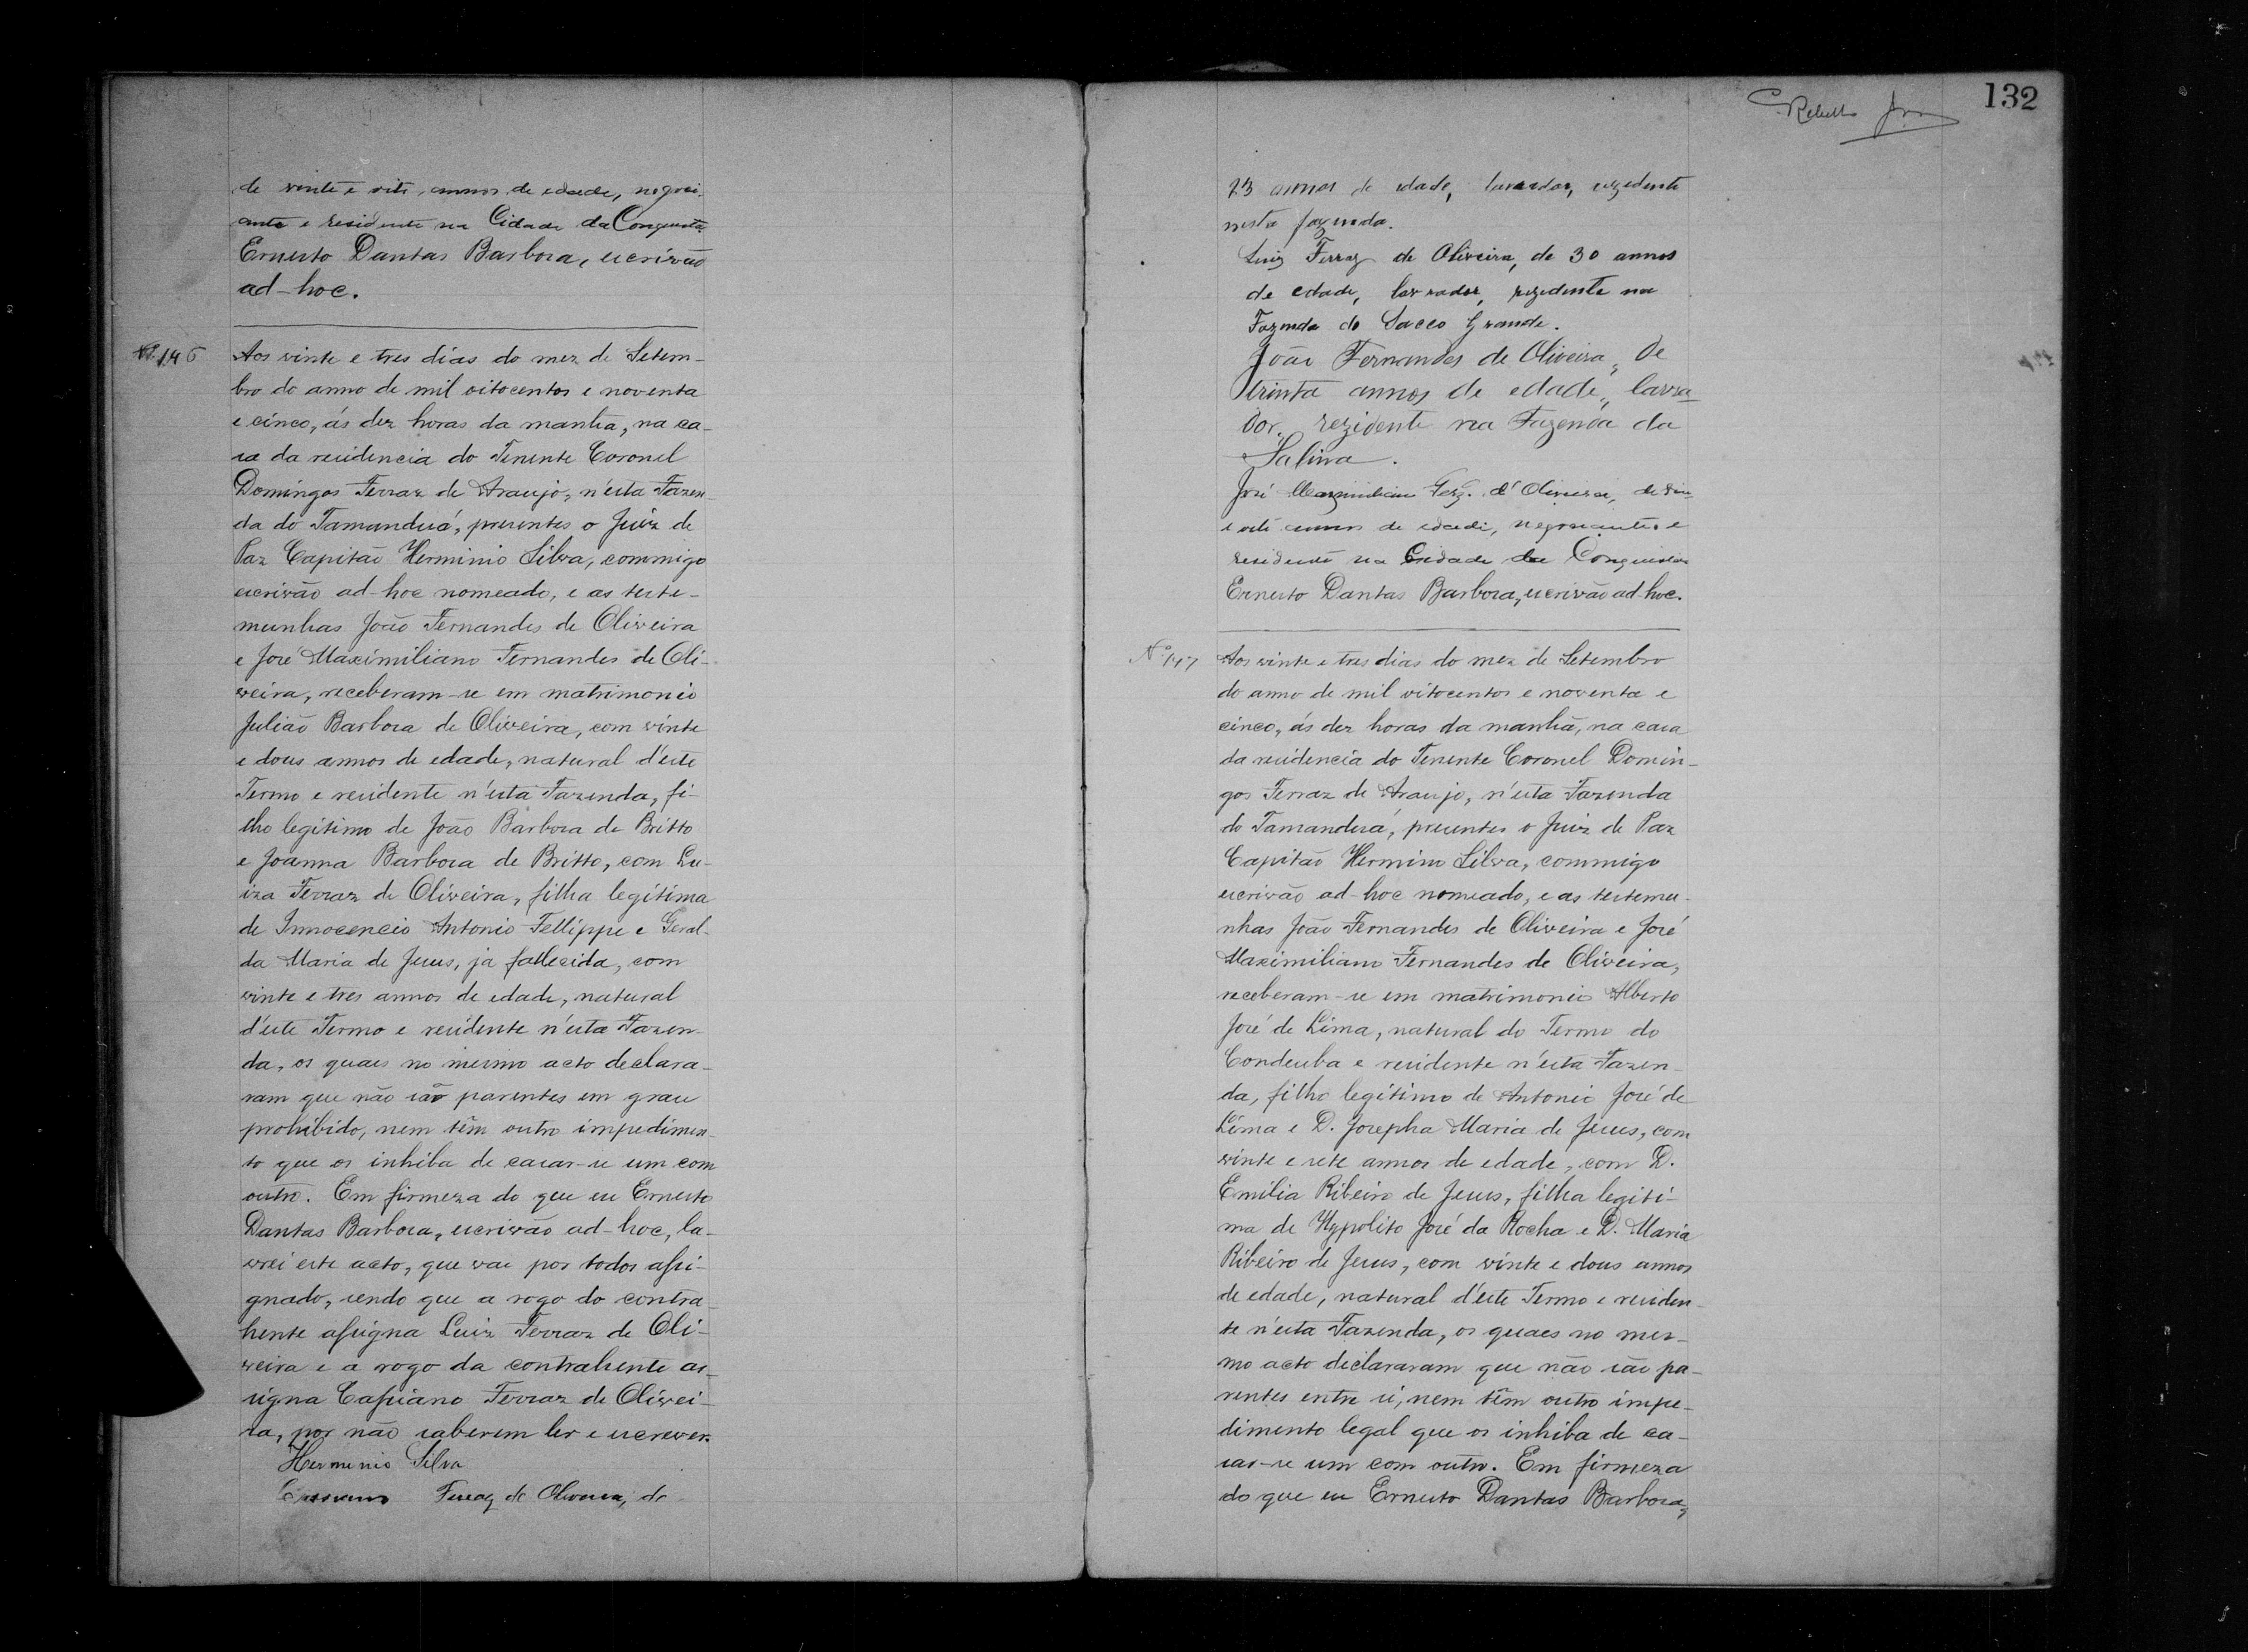 de vinte e oito annos de edade, negoci-
ante e residente na Cidade da Conquista
Ernesto Dantas Barbosa, escrivão
ad-hoc.
Nº 146
Aos vinte e tres dias do mez de Setem-
bro do anno de mil oitocentos e noventa
e cinco, ás dez horas da manhã, na ca-
sa da residencia do Tenente Coronel
Domingos Ferraz de Araujo, n'esta Fazen-
da do Tamanduá, presentes o Juiz de
Paz Capitão Herminio Silva, commigo
escrivão ad-hoc nomeado, e as teste-
munhas João Fernandes de Oliveira
e José Maximiliano Fernandes de Oli-
veira, receberam-se em matrimonio
Julião Barbosa de Oliveira, com vinte
e dous annos de edade, natural d'este
Termo e residente n'esta Fazenda, fi-
lho legitimo de João Barbosa de Britto
e Joanna Barbosa de Britto, com Lu-
iza Ferraz de Oliveira, filha legitima
de Innocencio Antonio Fellippe e Geral-
da Maria de Jesus, já fallecida, com
vinte e tres annos de edade, natural
d'este Termo e residente n'esta Fazen-
da, os quaes no mesmo acto declara-
ram que não são parentes em grau
prohibido, nem têm outro impedimen-
to que os inhiba de casar-se um com
outro. Em firmeza do que eu Ernesto
Dantas Barbosa, escrivão ad-hoc, la-
vrei este acto, que vae por todos assi-
gnado, sendo que a rogo do contra-
hente assigna Luiz Ferraz de Oli-
veira e a rogo da contrahente as-
signa Cassiano Ferraz de Olivei-
ra, por não saberem ler e escrever.
Herminio Silva
Cassiano Ferraz de Oliveira, de
132
23 annos de edade, lavrador, rezidente
nesta fazenda.
Luiz Ferraz de Oliveira, de 30 annos
de edade, lavrador, rezidente na
Fazenda do Sacco Grande.
João Fernandes de Oliveira, de
trinta annos de edade, lavra-
dor, rezidente na Fazenda da
Salina.
José Maximiliano Fez. d'Oliveira, de vin-
e oito annos de edade, negociante e
residente na Cidade da Conquista
Ernesto Dantas Barbosa, escrivão ad-hoc.
Nº 147
Aos vinte e tres dias do mez de Setembro
do anno de mil oitocentos e noventa e
cinco, ás dez horas da manhã, na casa
da residencia do Tenente Coronel Domin-
gos Ferraz de Araujo, n'esta Fazenda
do Tamanduá, presentes o Juiz de Paz
Capitão Herminio Silva, commigo
escrivão ad-hoc nomeado, e as testemu-
nhas João Fernandes de Oliveira e José
Maximiliano Fernandes de Oliveira,
receberam-se em matrimonio Alberto
José de Lima, natural do Termo do
Condeuba e residente n'esta Fazen-
da, filho legitimo de Antonio José de
Lima e D. Josepha Maria de Jesus, com
vinte e sete annos de edade, com D.
Emilia Ribeiro de Jesus, filha legiti-
ma de Hypolito José da Rocha e D. Maria
Ribeiro de Jesus, com vinte e dous annos
de edade, natural d'este Termo e residen-
te n'esta Fazenda, os quaes no mes-
mo acto declararam que não são pa-
rentes entre si, nem têm outro impe-
dimento legal que os inhiba de ca-
sar-se um com outro. Em firmeza
do que eu Ernesto Dantas Barbosa,